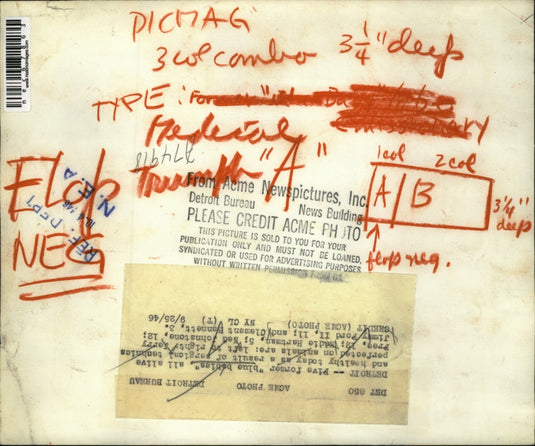 PICMAG
3 col combo 3 1/4" deep
TYPE:
Medical
Triumph "A"
A74978
1 col 2 col
A B
3 1/4" deep
flop neg.
Flop
NEG
REF. DEPT.
N.E.A.
From Acme Newspictures, Inc.
Detroit Bureau News Building
PLEASE CREDIT ACME PHOTO
THIS PICTURE IS SOLD TO YOU FOR YOUR
PUBLICATION ONLY AND MUST NOT BE LOANED,
SYNDICATED OR USED FOR ADVERTISING PURPOSES
WITHOUT WRITTEN PERMISSION FROM US.
DET 850
ACME PHOTO DETROIT BUREAU
DETROIT -- Five former "blue babies", all alive
and healthy today as a result of surgical technics
perfected on animals are: left to right; Kerry
Free, 12; Eddie Hartman, 5; Ned Johnstone, 12;
Jimmy Ford II, 11; and Clement Bennett, 3.
CREDIT (ACME PHOTO) NY CL (T) 9/25/46